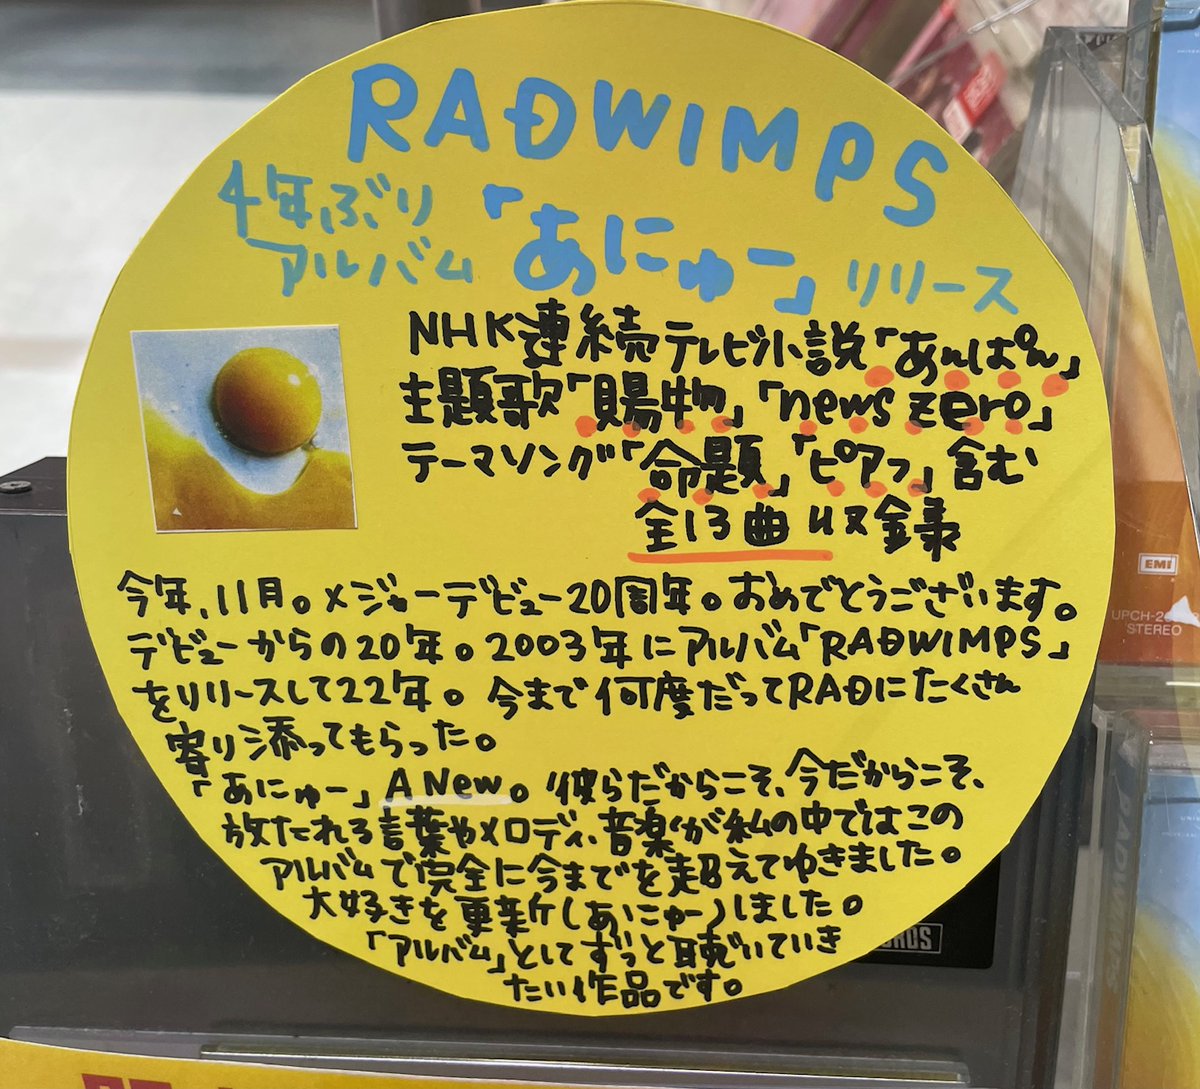 RADWIMPS
4年ぶり
アルバム「あにゅー」リリース
NHK連続テレビ小説「あんぱん」
主題歌「賜物」「news zero」
テーマソング「命題」「ピアフ」含む
全13曲収録
今年、11月。メジャーデビュー20周年。おめでとうございます。
デビューからの20年。2003年にアルバム「RADWIMPS」
をリリースして22年。今まで何度だってRADにたくさん
寄り添ってもらった。
「あにゅー」A New。彼らだからこそ、今だからこそ、
放たれる言葉やメロディ、音楽が私の中ではこの
アルバムで完全に今までを超えてゆきました。
大好きを更新(あにゅー)しました。
「アルバム」としてずっと聴いていき
たい作品です。
EMI
STEREO
RADWIMPS